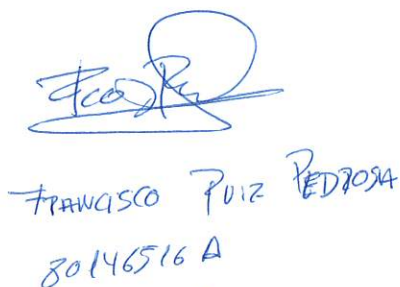 Fco Ruiz
FRANCISCO RUIZ PEDROSA
80146516 A